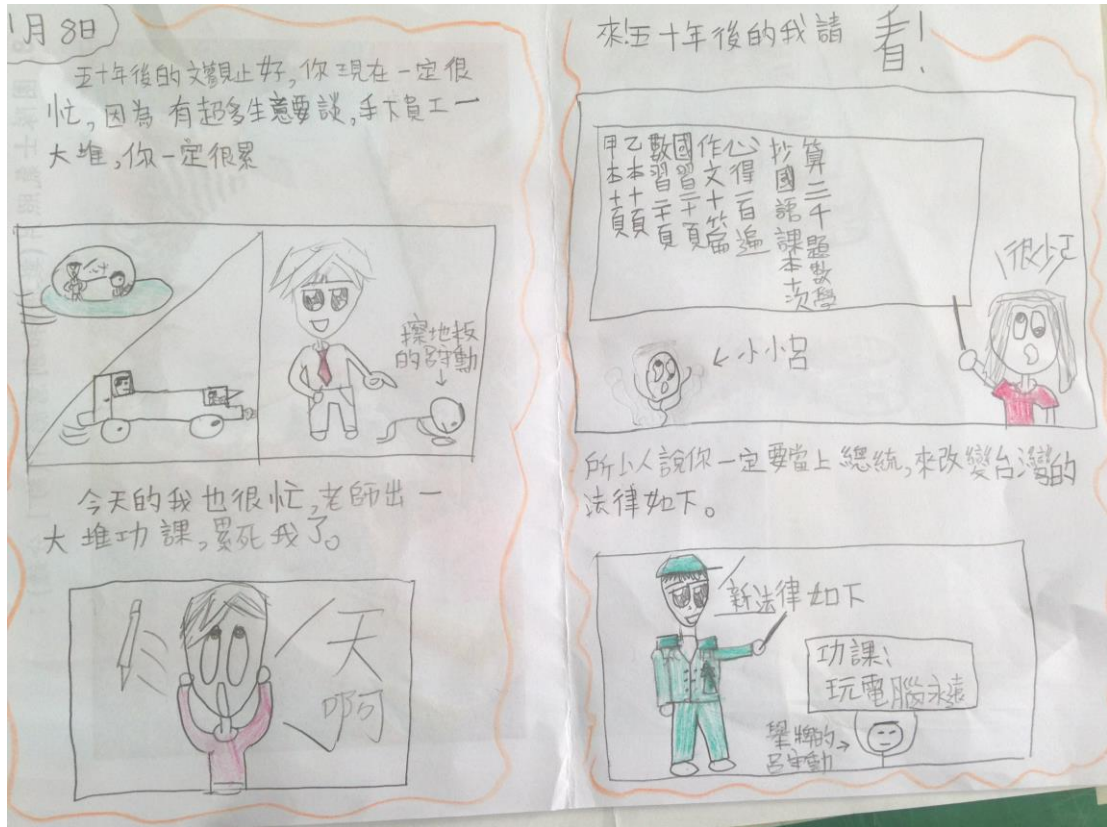 1月8日
五十年後的文觀止好,你現在一定很
忙,因為有超多生意要談,手下員工一
大堆,你一定很累
擦地板
的呂守動
今天的我也很忙,老師出一
大堆功課,累死我了。
天
啊
來!五十年後的我請看!
甲本十頁
乙本十頁
數習二十頁
國習二十頁
作文十篇
心得一百遍
抄國語課本
算二千題數學
很少了
小小呂
所以人說你一定要當上總統,來改變台灣的
法律如下。
新法律如下
功課:
玩電腦永遠
舉牌的
呂守動